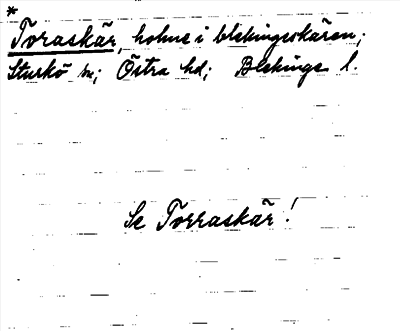 *
Toraskär, holme i blekingeskären;
Sturkö sn; Östra hd; Blekinge l.
Se Torraskär!